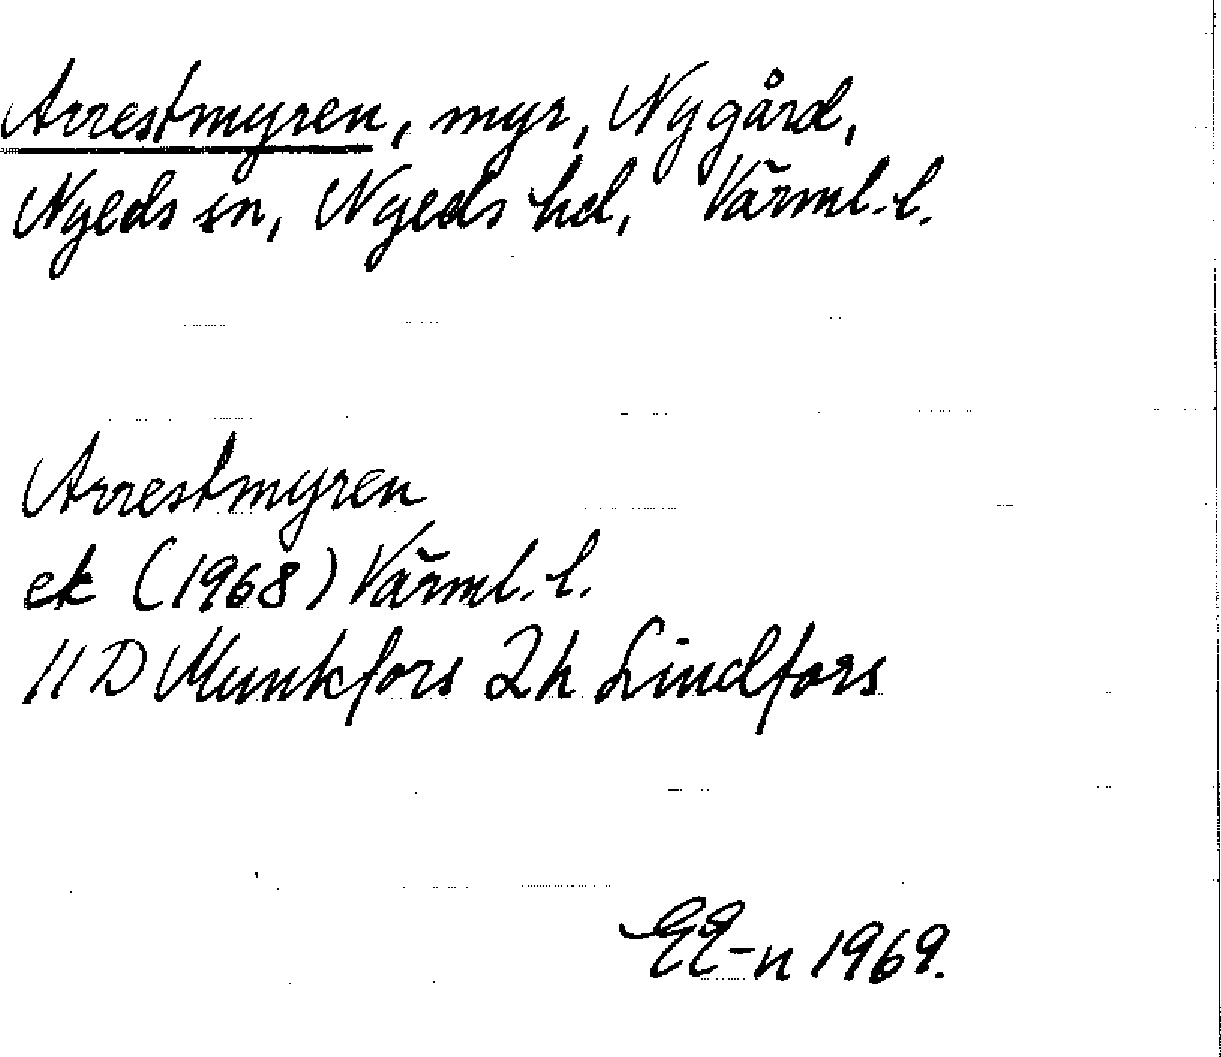 Arrestmyren, myr, Nygård,
Nyeds sn, Nyeds hd, Värml. l.
Arrestmyren
ek (1968) Värml. l.
11D Munkfors 2h Lindfors
EE-n 1969.